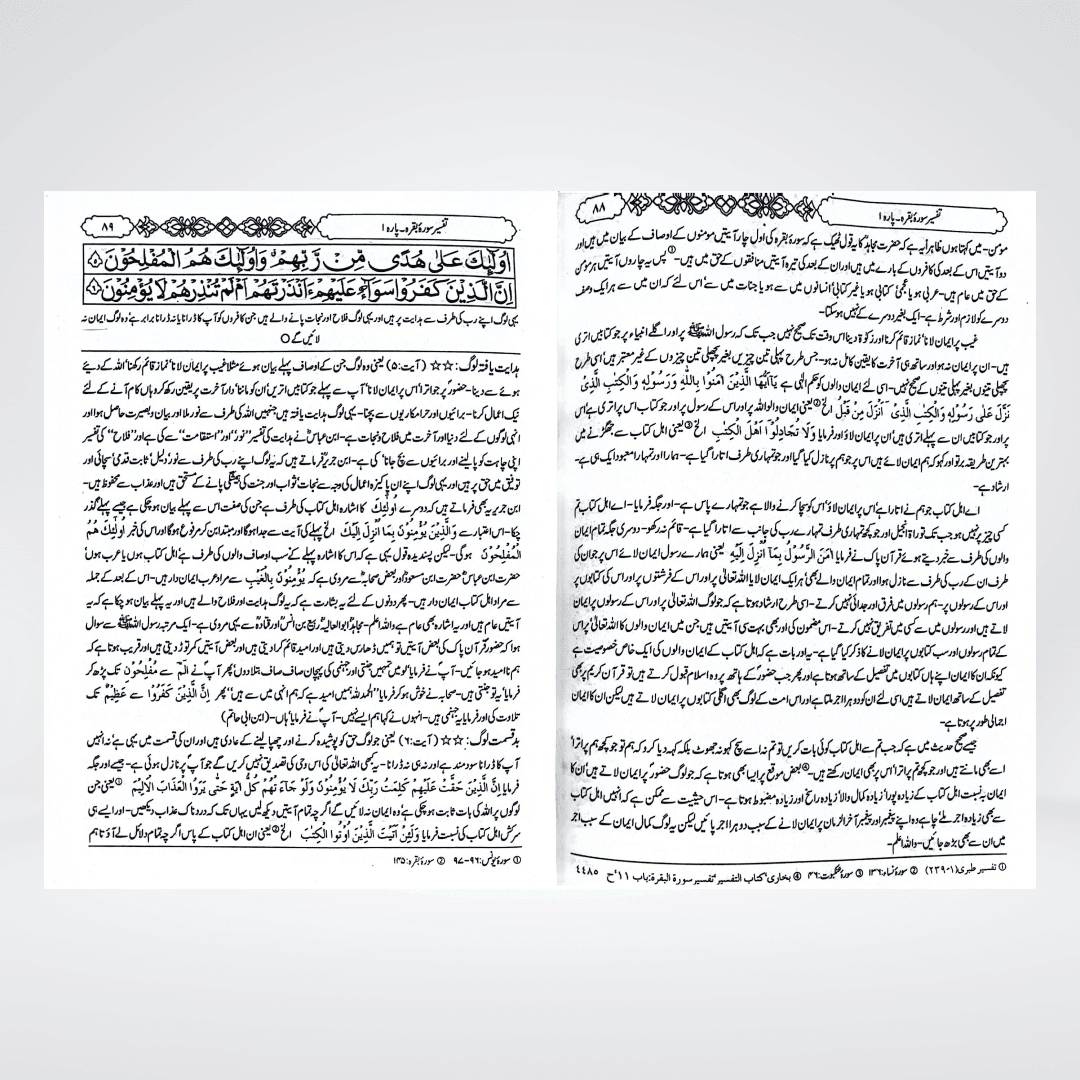 تفسیر سورۂ بقرہ۔ پارہ ۱
۸۸
مومن۔ میں کہتا ہوں ظاہر آیہ ہے کہ حضرت مجاہد کا یہ قول ٹھیک ہے کہ سورۂ بقرہ کی اول چار آیتیں مومنوں کے اوصاف کے بیان میں ہیں اور
دو آیتیں اس کے بعد کی کافروں کے بارے میں ہیں اور ان کے بعد کی تیرہ آیتیں منافقوں کے حق میں ہیں۔① پس یہ چاروں آیتیں ہر مومن
کے حق میں عام ہیں۔ عربی ہو یا عجمی' کتابی ہو یا غیر کتابی' انسانوں میں سے ہو یا جنات میں سے' اس لئے کہ ان میں سے ہر ایک وصف
دوسرے کو لازم اور شرط ہے۔ ایک بغیر دوسرے کے نہیں ہو سکتا۔
غیب پر ایمان لانا' نماز قائم کرنا اور زکوٰۃ دینا اس وقت تک صحیح نہیں جب تک کہ رسول اللہ ﷺ پر اور اگلے انبیاء پر جو کتابیں اتری
ہیں۔ ان پر ایمان نہ ہو اور ساتھ ہی آخرت کا یقین کامل نہ ہو۔ جس طرح پہلی تین چیزیں بغیر پچھلی تین چیزوں کے غیر معتبر ہیں' اسی طرح
پچھلی تینوں بغیر پہلی تینوں کے صحیح نہیں۔ اسی لئے ایمان والوں کو حکم الٰہی ہے یٰٓاَیُّھَا الَّذِیْنَ اٰمَنُوْا بِاللّٰہِ وَرَسُوْلِہٖ وَالْکِتٰبِ الَّذِیْ
نَزَّلَ عَلٰی رَسُوْلِہٖ وَالْکِتٰبِ الَّذِیْٓ اَنْزَلَ مِنْ قَبْلُ الخ② یعنی ایمان والو اللہ پر اور اس کے رسول پر اور جو کتاب اس پر اتری ہے اس
پر اور جو کتابیں ان سے پہلے اتری ہیں ان پر ایمان لاؤ اور فرمایا وَلَا تُجَادِلُوْٓا اَھْلَ الْکِتٰبِ الخ③ یعنی اہل کتاب سے جھگڑنے میں
بہترین طریقہ برتو اور کہو کہ ہم ایمان لائے ہیں اس پر جو ہم پر نازل کیا گیا اور جو تمہاری طرف اتارا گیا ہے۔ ہمارا اور تمہارا معبود ایک ہی ہے۔
ارشاد ہے۔
اے اہل کتاب جو ہم نے اتارا ہے اس پر ایمان لاؤ' اس کو سچا کرنے والا ہے جو تمہارے پاس ہے۔ اور جگہ فرمایا۔ اے اہل کتاب تم
کسی چیز پر نہیں ہو جب تک تورات' انجیل اور جو کچھ تمہاری طرف تمہارے رب کی جانب سے اتارا گیا ہے۔ قائم نہ رکھو۔ دوسری جگہ تمام ایمان
والوں کی طرف سے خبر دیتے ہوئے قرآن پاک نے فرمایا اٰمَنَ الرَّسُوْلُ بِمَآ اُنْزِلَ اِلَیْہِ یعنی ہمارے رسول ایمان لائے اس پر جو ان کی
طرف ان کے رب کی طرف سے نازل ہوا اور تمام ایمان والے بھی' ہر ایک ایمان لایا اللہ تعالیٰ پر اور اس کے فرشتوں پر اور اس کی کتابوں پر
اور اس کے رسولوں پر۔ ہم رسولوں میں فرق اور جدائی نہیں کرتے۔ اسی طرح ارشاد ہوتا ہے کہ جو لوگ اللہ تعالیٰ پر اور اس کے رسولوں پر ایمان
لاتے ہیں اور رسولوں میں سے کسی میں تفریق نہیں کرتے۔ اس مضمون کی اور بھی بہت سی آیتیں ہیں جن میں ایمان والوں کا اللہ تعالیٰ پر اس
کے تمام رسولوں اور سب کتابوں پر ایمان لانے کا ذکر کیا گیا ہے۔ یہ اور بات ہے کہ اہل کتاب کے ایمان والوں کی ایک خاص خصوصیت ہے
کیونکہ ان کا ایمان اپنے ہاں کتابوں میں تفصیل کے ساتھ ہوتا ہے اور پھر جب حضور کے ہاتھ پر وہ اسلام قبول کرتے ہیں تو قرآن کریم پر بھی
تفصیل کے ساتھ ایمان لاتے ہیں اسی لئے ان کو دوہرا اجر ملتا ہے اور اس امت کے لوگ بھی اگلی کتابوں پر ایمان لاتے ہیں لیکن ان کا ایمان
اجمالی طور پر ہوتا ہے۔
جیسے صحیح حدیث میں ہے کہ جب تم سے اہل کتاب کوئی بات کریں تو تم نہ اسے سچ کہو نہ جھوٹ بلکہ کہہ دیا کرو کہ ہم تو جو کچھ ہم پر اترا
اسے بھی مانتے ہیں اور جو کچھ تم پر اترا' اس پر بھی ایمان رکھتے ہیں۔④ بعض موقع پر ایسا بھی ہوتا ہے کہ جو لوگ حضور پر ایمان لاتے ہیں ان کا
ایمان بہ نسبت اہل کتاب کے زیادہ پورا' زیادہ کمال والا' زیادہ راسخ اور زیادہ مضبوط ہوتا ہے۔ اس حیثیت سے ممکن ہے کہ انہیں اہل کتاب
سے بھی زیادہ اجر ملے چاہے وہ اپنے پیغمبر اور پیغمبر آخر الزمان پر ایمان لانے کے سبب دوہرا اجر پائیں لیکن یہ لوگ کمال ایمان کے سبب اجر
میں ان سے بھی بڑھ جائیں۔ واللہ اعلم۔
① تفسیر طبری (۱-۲۳۹) ② سورۂ نساء: ۱۳۶ ③ سورۂ عنکبوت: ۴۶ ④ بخاری' کتاب التفسیر' تفسیر سورۃ البقرۃ: باب ۱۱' ح ۴۴۸۵
تفسیر سورۂ بقرہ۔ پارہ ۱
۸۹
اُولٰٓئِکَ عَلٰی ھُدًی مِّنْ رَّبِّھِمْ وَاُولٰٓئِکَ ھُمُ الْمُفْلِحُوْنَ ۵
اِنَّ الَّذِیْنَ کَفَرُوْا سَوَآءٌ عَلَیْھِمْ ءَاَنْذَرْتَھُمْ اَمْ لَمْ تُنْذِرْھُمْ لَا یُؤْمِنُوْنَ ۶
یہی لوگ اپنے رب کی طرف سے ہدایت پر ہیں اور یہی لوگ فلاح اور نجات پانے والے ہیں جن کافروں کو آپ کا ڈرانا یا نہ ڈرانا برابر ہے' وہ لوگ ایمان نہ
لائیں گے ○
ہدایت یافتہ لوگ: ☆☆ (آیت: ۵) یعنی وہ لوگ جن کے اوصاف پہلے بیان ہوئے مثلا غیب پر ایمان لانا' نماز قائم رکھنا' اللہ کے دیے
ہوئے سے دینا۔ حضور پر جو اترا' اس پر ایمان لانا' آپ سے پہلے جو کتابیں اتریں ان کو ماننا' دار آخرت پر یقین رکھ کر وہاں کام آنے کے لئے
نیک اعمال کرنا۔ برائیوں اور حرام کاریوں سے بچنا۔ یہی لوگ ہدایت یافتہ ہیں جنہیں اللہ کی طرف سے نور ملا اور بیان و بصیرت حاصل ہوا اور
انہی لوگوں کے لئے دنیا اور آخرت میں فلاح و نجات ہے۔ ابن عباس نے ہدایت کی تفسیر "نور" اور "استقامت" سے کی ہے اور "فلاح" کی تفسیر
اپنی چاہت کو پا لینے اور برائیوں سے بچ جانا' کی ہے۔ ابن جریر فرماتے ہیں کہ یہ لوگ اپنے رب کی طرف سے نور' دلیل' ثابت قدمی' سچائی اور
توفیق میں حق پر ہیں اور یہی لوگ اپنے ان پاکیزہ اعمال کی وجہ سے نجات' ثواب اور جنت کی ہمیشگی پانے کے مستحق ہیں اور عذاب سے محفوظ ہیں۔
ابن جریر یہ بھی فرماتے ہیں کہ دوسرے اُولٰٓئِکَ کا اشارہ اہل کتاب کی طرف ہے جن کی صفت اس سے پہلے بیان ہو چکی ہے جیسے پہلے گذر
چکا۔ اس اعتبار سے وَالَّذِیْنَ یُؤْمِنُوْنَ بِمَآ اُنْزِلَ اِلَیْکَ الخ پہلے کی آیت سے جدا ہوگا اور مبتدا بن کر مرفوع ہوگا اور اس کی خبر اُولٰٓئِکَ ھُمُ
الْمُفْلِحُوْنَ ہوگی۔ لیکن پسندیدہ قول یہی ہے کہ اس کا اشارہ پہلے کے سب اوصاف والوں کی طرف ہے' اہل کتاب ہوں یا عرب ہوں'
حضرت ابن عباس حضرت ابن مسعود اور بعض صحابہ سے مروی ہے کہ یُؤْمِنُوْنَ بِالْغَیْبِ سے مراد عرب ایمان دار ہیں۔ اس کے بعد کے جملہ
سے مراد اہل کتاب ایمان دار ہیں۔ پھر دونوں کے لئے یہ بشارت ہے کہ یہ لوگ ہدایت اور فلاح والے ہیں اور یہ پہلے بیان ہو چکا ہے کہ یہ
آیتیں عام ہیں اور یہ اشارہ بھی عام ہے واللہ اعلم۔ مجاہد' ابو العالیہ' ربیع بن انس اور قتادہ سے یہی مروی ہے۔ ایک مرتبہ رسول اللہ ﷺ سے سوال
ہوا کہ حضور قرآن پاک کی بعض آیتیں تو ہمیں ڈھارس دیتی ہیں اور امید قائم کرا دیتی ہیں اور بعض آیتیں کمر توڑ دیتی ہیں اور قریب ہوتا ہے کہ
ہم نا امید ہو جائیں۔ آپ نے فرمایا' لو میں تمہیں جنتی اور جہنمی کی پہچان صاف صاف بتلا دوں' پھر آپ نے الٓمّ سے مُفْلِحُوْنَ تک پڑھ کر
فرمایا' یہ تو جنتی ہیں۔ صحابہ نے خوش ہو کر فرمایا' "الحمد للہ ہمیں امید ہے کہ ہم انہی میں سے ہیں" پھر اِنَّ الَّذِیْنَ کَفَرُوْا سے عَظِیْمٌ تک
تلاوت کی اور فرمایا یہ جہنمی ہیں۔ انہوں نے کہا ہم ایسے نہیں۔ آپ نے فرمایا' ہاں۔ (ابن ابی حاتم)
بد قسمت لوگ: ☆☆ (آیت: ۶) یعنی جو لوگ حق کو پوشیدہ کرنے اور چھپا لینے کے عادی ہیں اور ان کی قسمت میں یہی ہے' نہ انہیں
آپ کا ڈرانا سود مند ہے اور نہ ہی نہ ڈرانا۔ یہ کبھی اللہ تعالیٰ کی اس وحی کی تصدیق نہیں کریں گے جو آپ پر نازل ہوئی ہے۔ جیسے اور جگہ
فرمایا اِنَّ الَّذِیْنَ حَقَّتْ عَلَیْھِمْ کَلِمَتُ رَبِّکَ لَا یُؤْمِنُوْنَ وَلَوْ جَآءَ تْھُمْ کُلُّ اٰیَۃٍ حَتّٰی یَرَوُا الْعَذَابَ الْاَلِیْمَ① یعنی جن
لوگوں پر اللہ کی بات ثابت ہو چکی ہے' وہ ایمان نہ لائیں گے اگرچہ تمام آیتیں دیکھ لیں یہاں تک کہ دردناک عذاب دیکھیں۔ اور ایسے ہی
سرکش اہل کتاب کی نسبت فرمایا وَلَئِنْ اَتَیْتَ الَّذِیْنَ اُوْتُوا الْکِتٰبَ الخ② یعنی ان اہل کتاب کے پاس اگرچہ تمام دلائل لے آؤ تاہم
① سورۂ یونس: ۹۶-۹۷ ② سورۂ بقرہ: ۱۴۵